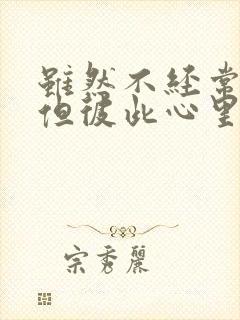 雖然不經常
但彼此心里
宗秀麗